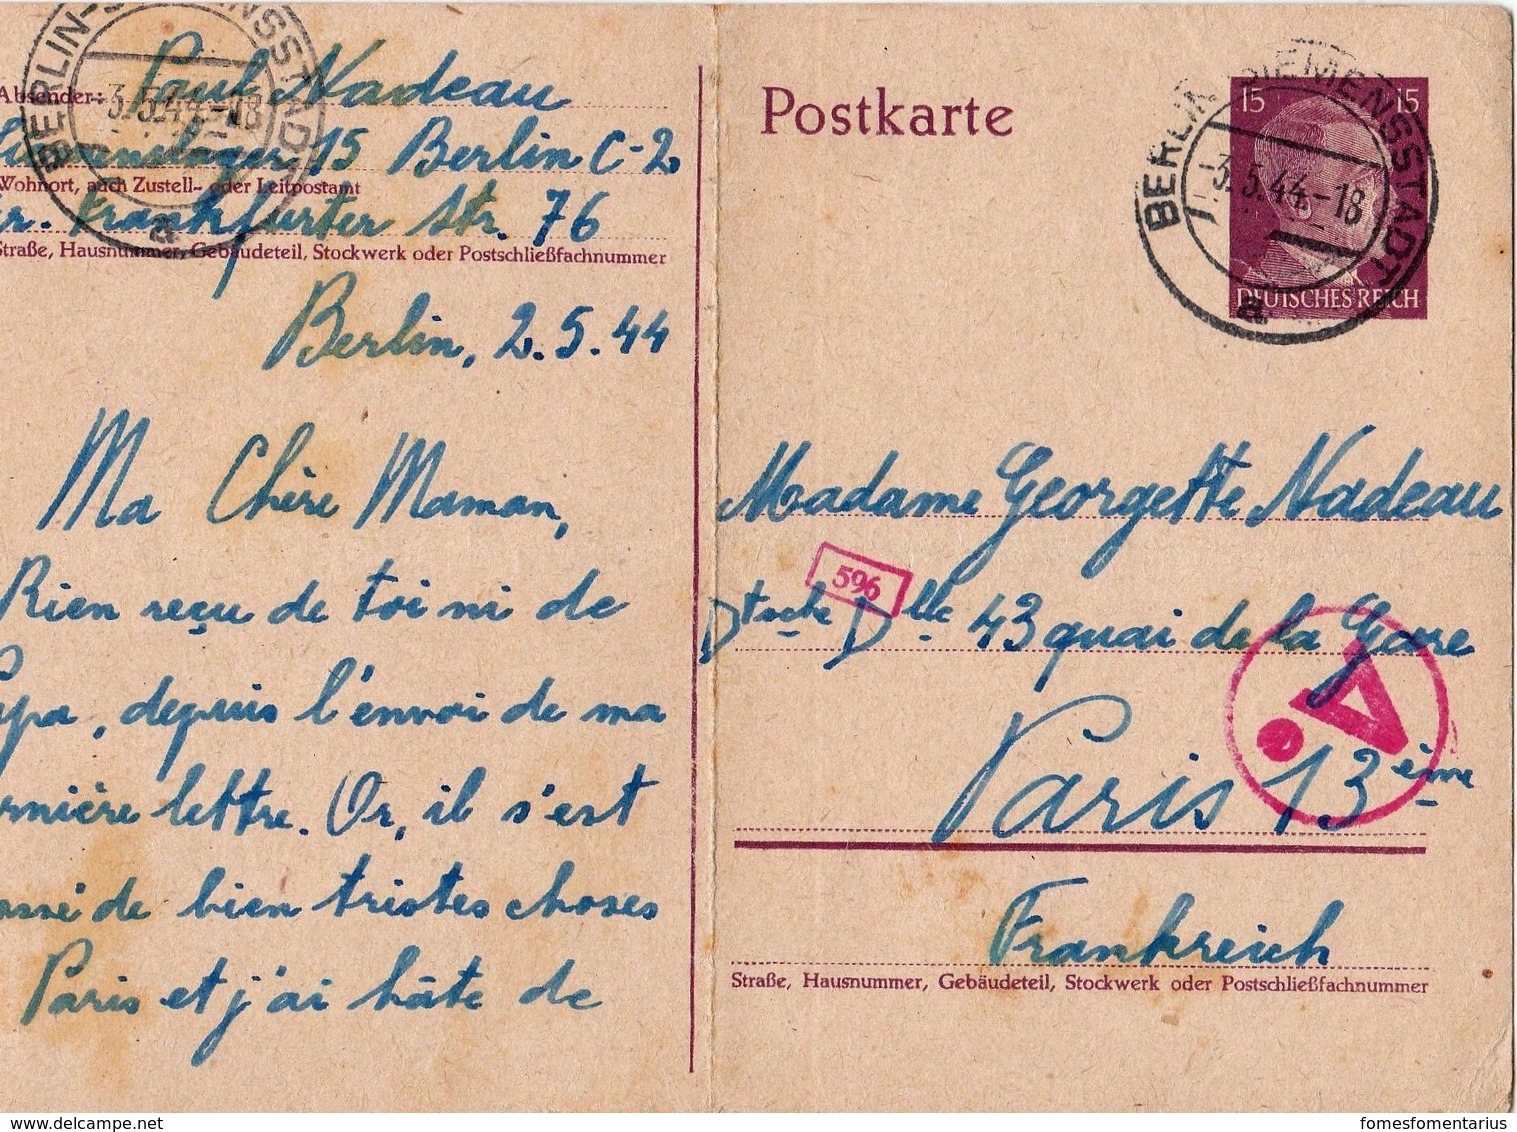 BERLIN-S NSSTADT
-3.5.44.-18
a
Absender:
Paul Nadeau
15 Berlin C-2
Wohnort, auch Zustell- oder Leitpostamt
Gr. Frankfurter Str. 76
Straße, Hausnummer, Gebäudeteil, Stockwerk oder Postschließfachnummer
Berlin, 2.5.44
Ma Chère Maman,
Rien reçu de toi ni de
Papa, depuis l'envoi de ma
dernière lettre. Or, il s'est
passé de bien tristes choses
Paris et j'ai hâte de
Postkarte
15 15
DEUTSCHES REICH
BERLIN SIEMENSSTADT
-3.5.44.-18
a
Madame Georgette Nadeau
596
43 quai de la Gare
A.
Paris 13ème
Frankreich
Straße, Hausnummer, Gebäudeteil, Stockwerk oder Postschließfachnummer
www.delcampe.net
fomesfomentarius